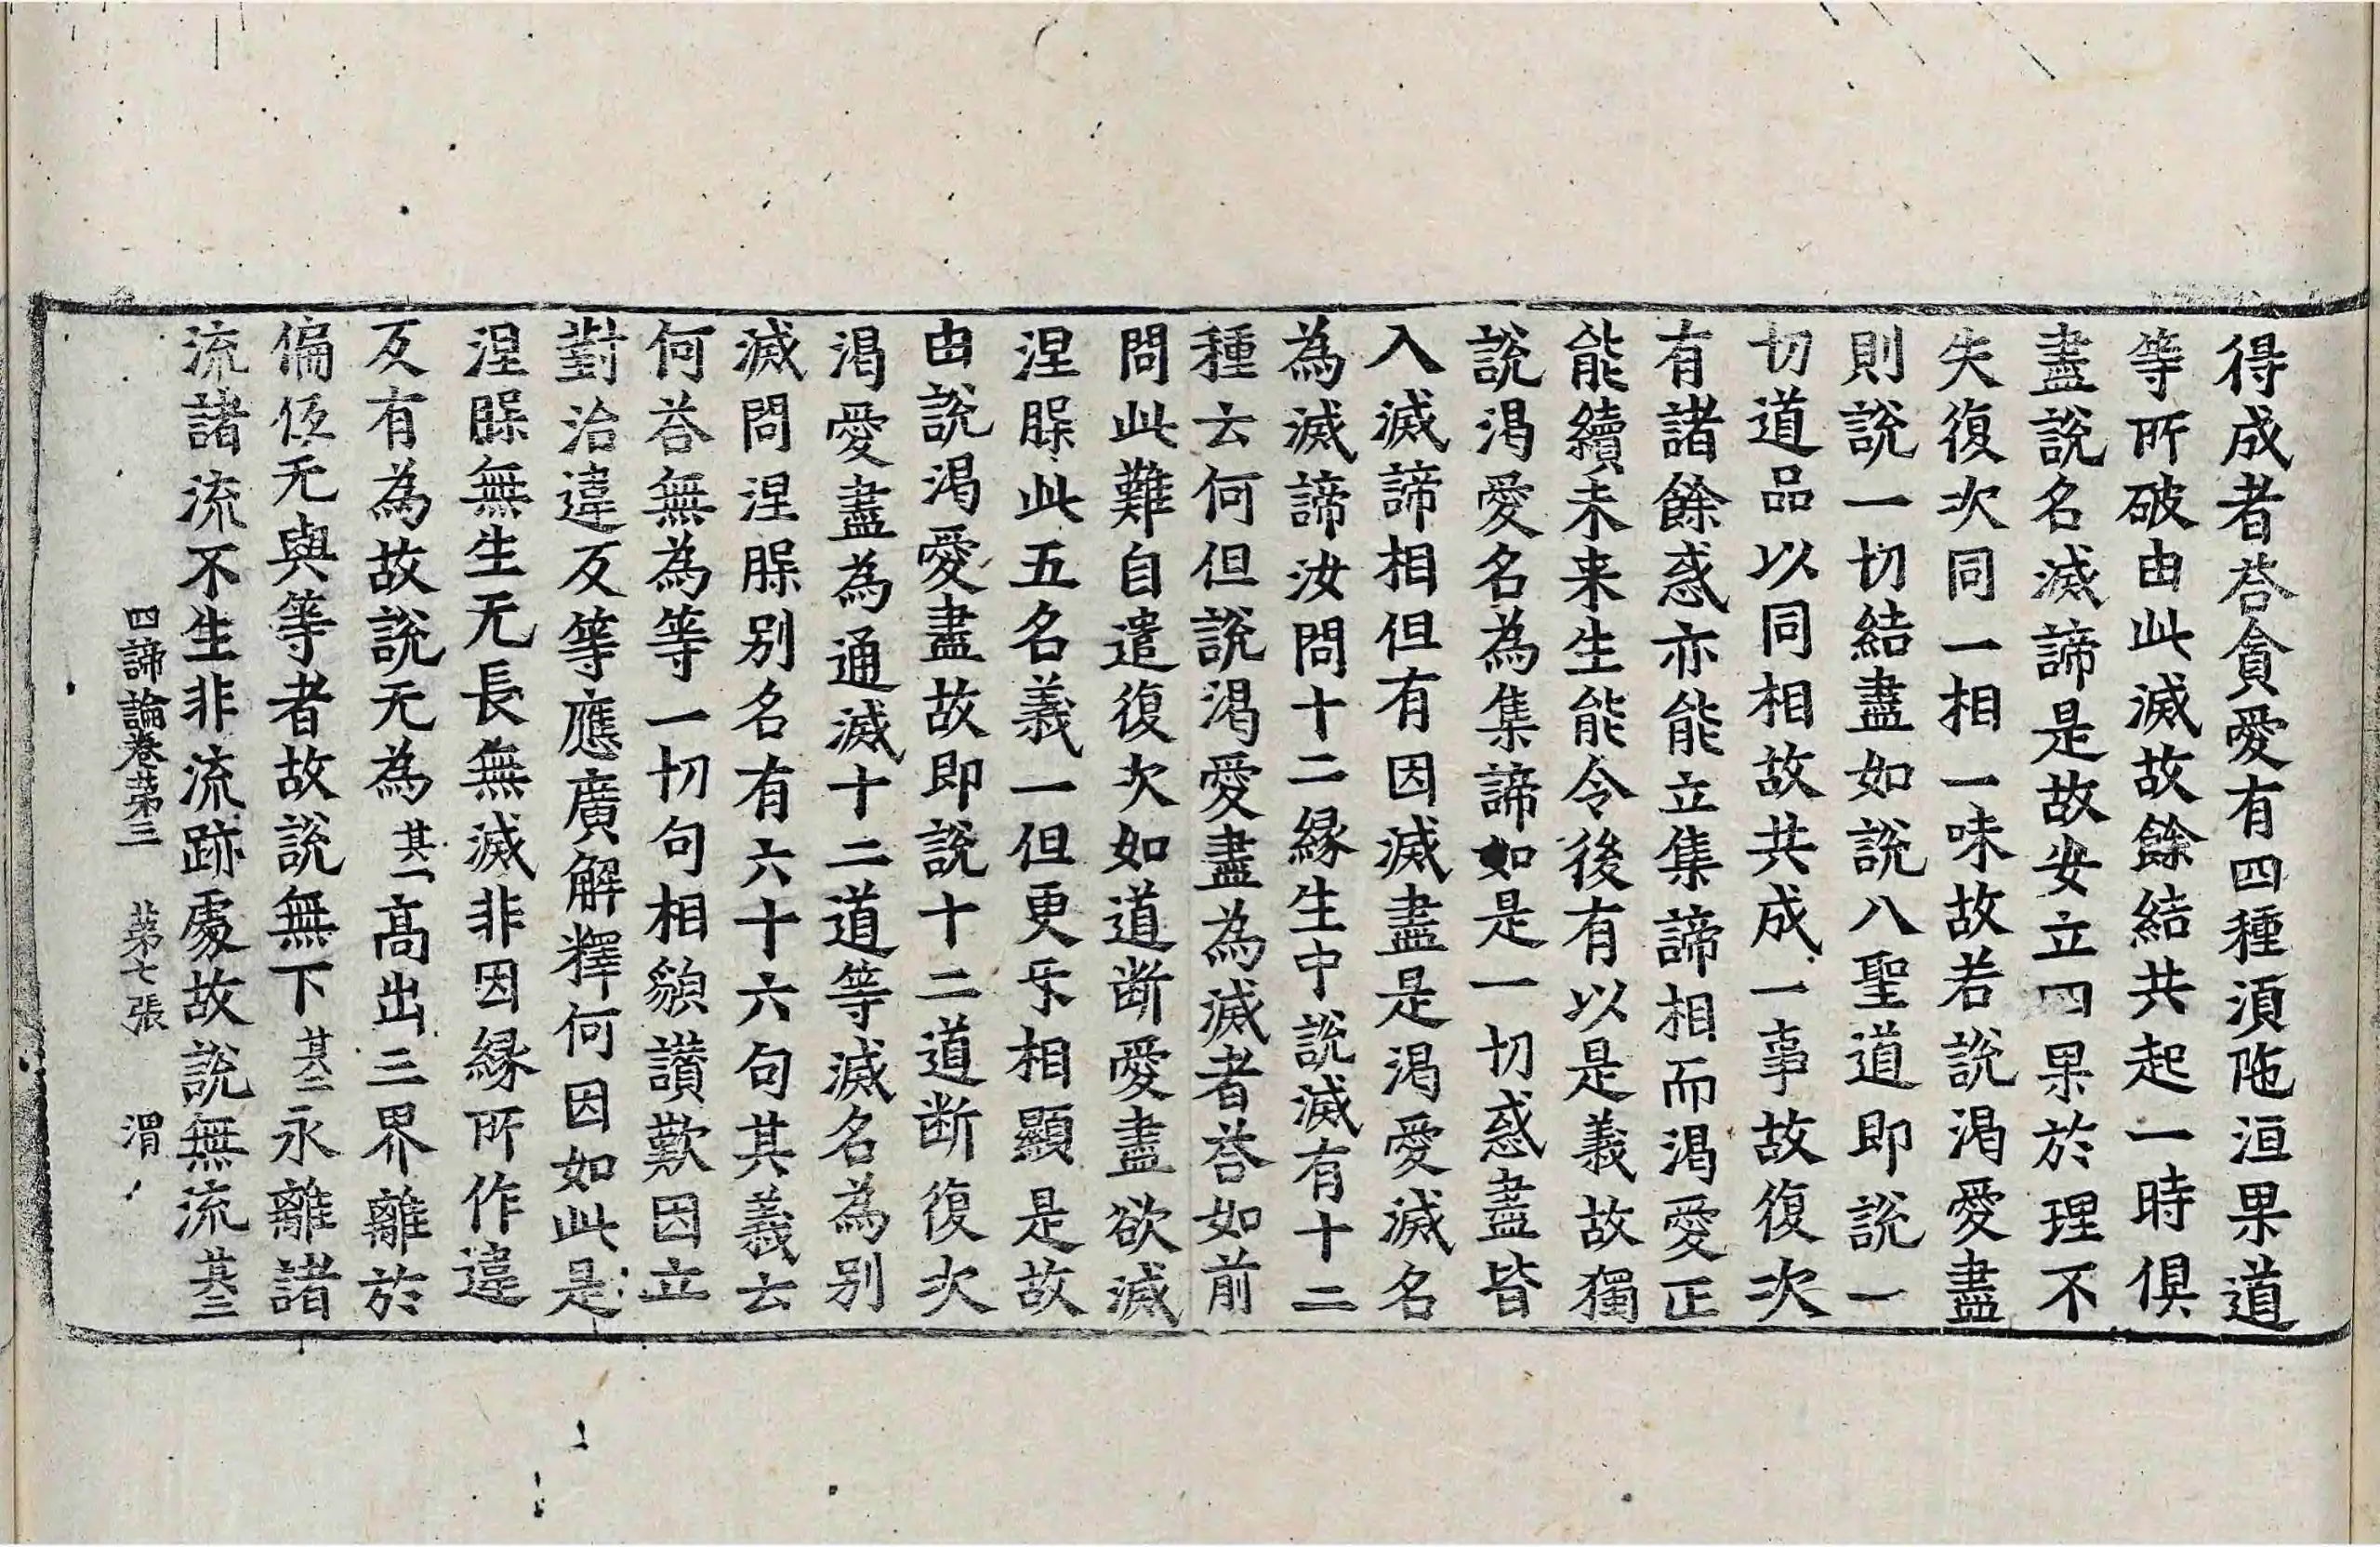 得成者荅貪愛有四種湏陁洹果道
等所破由此滅故餘結共起一時俱
盡說名滅諦是故安立四果於理不
失復次同一相一味故若說渴愛盡
則說一切結盡如說八聖道即說一
切道品以同相故共成一事故復次
有諸餘惑亦能立集諦相而渴愛正
能續未来生能令後有以是義故獨
說渴愛名為集諦如是一切惑盡皆
入滅諦相但有因滅盡是渴愛滅名
為滅諦汝問十二縁生中說滅有十二
種云何但說渴愛盡為滅者荅如前
問此難自遣復次如道断愛盡欲滅
涅槃此五名義一但更㸦相顯是故
由說渴愛盡故即說十二道断復次
渴愛盡為通滅十二道等滅名為别
滅問涅槃别名有六十六句其義云
何荅無為等一切句相貌讃歎因立
對治違反等應廣解釋何因如此是
涅槃無生无長無滅非因縁所作違
反有為故說无為其一髙出三界離於
偏伭无與等者故說無下其二永離諸
流諸流不生非流跡處故說無流其三
四諦論卷苐三 苐七張 渭